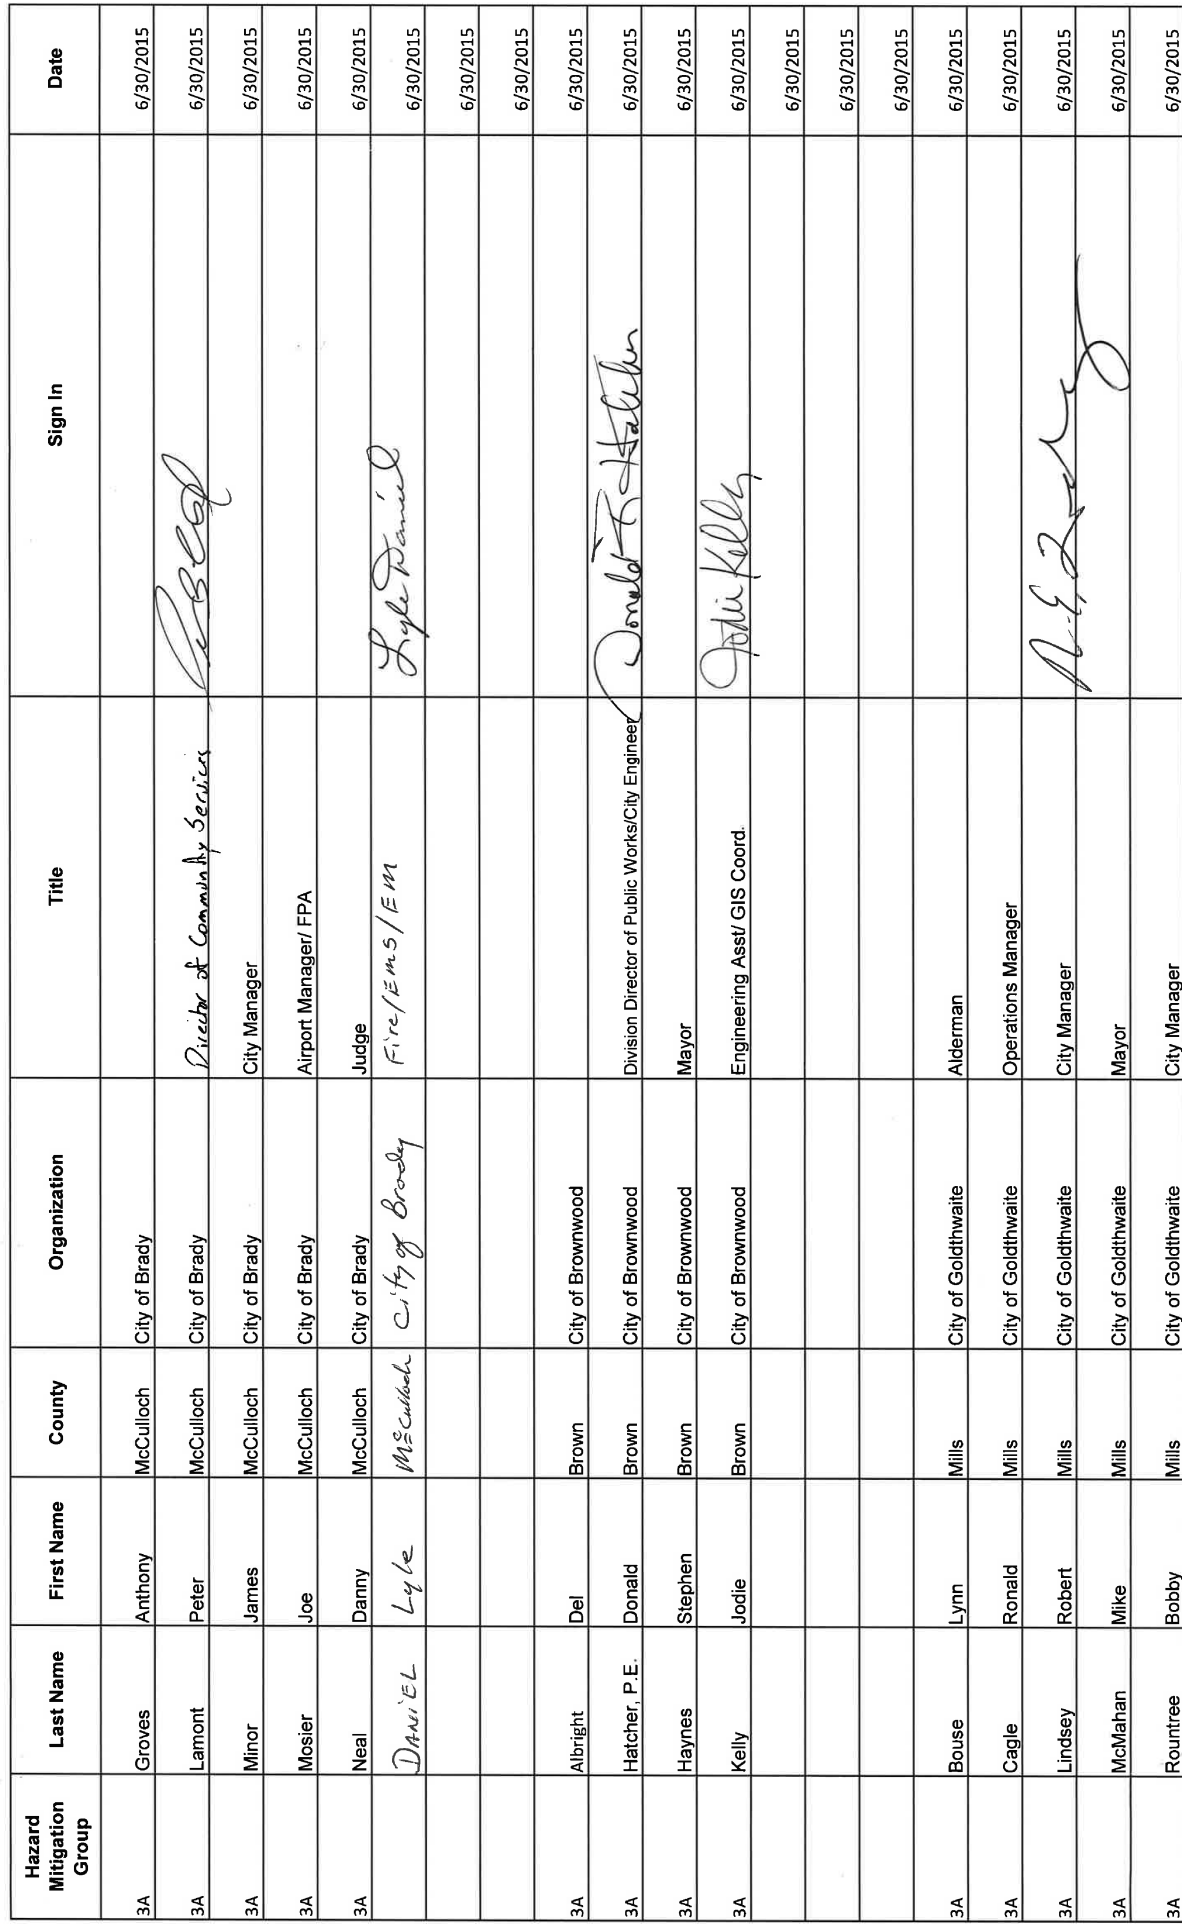 Hazard Mitigation Group Last Name First Name County Organization Title Sign In Date
3A Groves Anthony McCulloch City of Brady 6/30/2015
3A Lamont Peter McCulloch City of Brady Director of Community Services 6/30/2015
3A Minor James McCulloch City of Brady City Manager 6/30/2015
3A Mosier Joe McCulloch City of Brady Airport Manager/ FPA 6/30/2015
3A Neal Danny McCulloch City of Brady Judge 6/30/2015
DANiEL Lyle McCulloch City of Brady Fire/EMS/EM Lyle Daniel 6/30/2015
6/30/2015
6/30/2015
3A Albright Del Brown City of Brownwood 6/30/2015
3A Hatcher, P.E. Donald Brown City of Brownwood Division Director of Public Works/City Engineer Donald F. Hatcher 6/30/2015
3A Haynes Stephen Brown City of Brownwood Mayor 6/30/2015
3A Kelly Jodie Brown City of Brownwood Engineering Asst/ GIS Coord. Jodie Kelly 6/30/2015
6/30/2015
6/30/2015
6/30/2015
3A Bouse Lynn Mills City of Goldthwaite Alderman 6/30/2015
3A Cagle Ronald Mills City of Goldthwaite Operations Manager 6/30/2015
3A Lindsey Robert Mills City of Goldthwaite City Manager 6/30/2015
3A McMahan Mike Mills City of Goldthwaite Mayor 6/30/2015
3A Rountree Bobby Mills City of Goldthwaite City Manager 6/30/2015